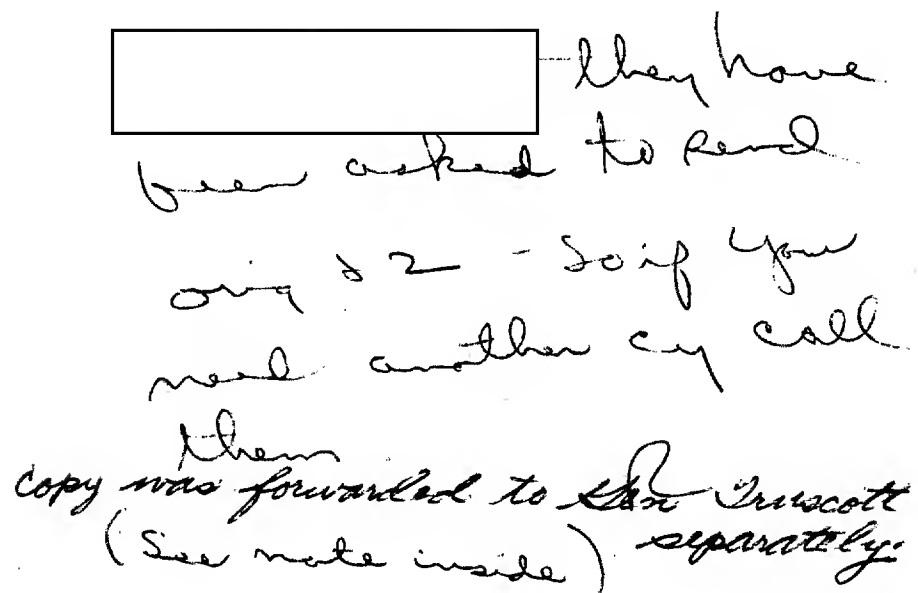 they have
been asked to send
orig & 2 - So if you
need another cy call
them
copy was forwarded to Gen Truscott
separately.
(See note inside)